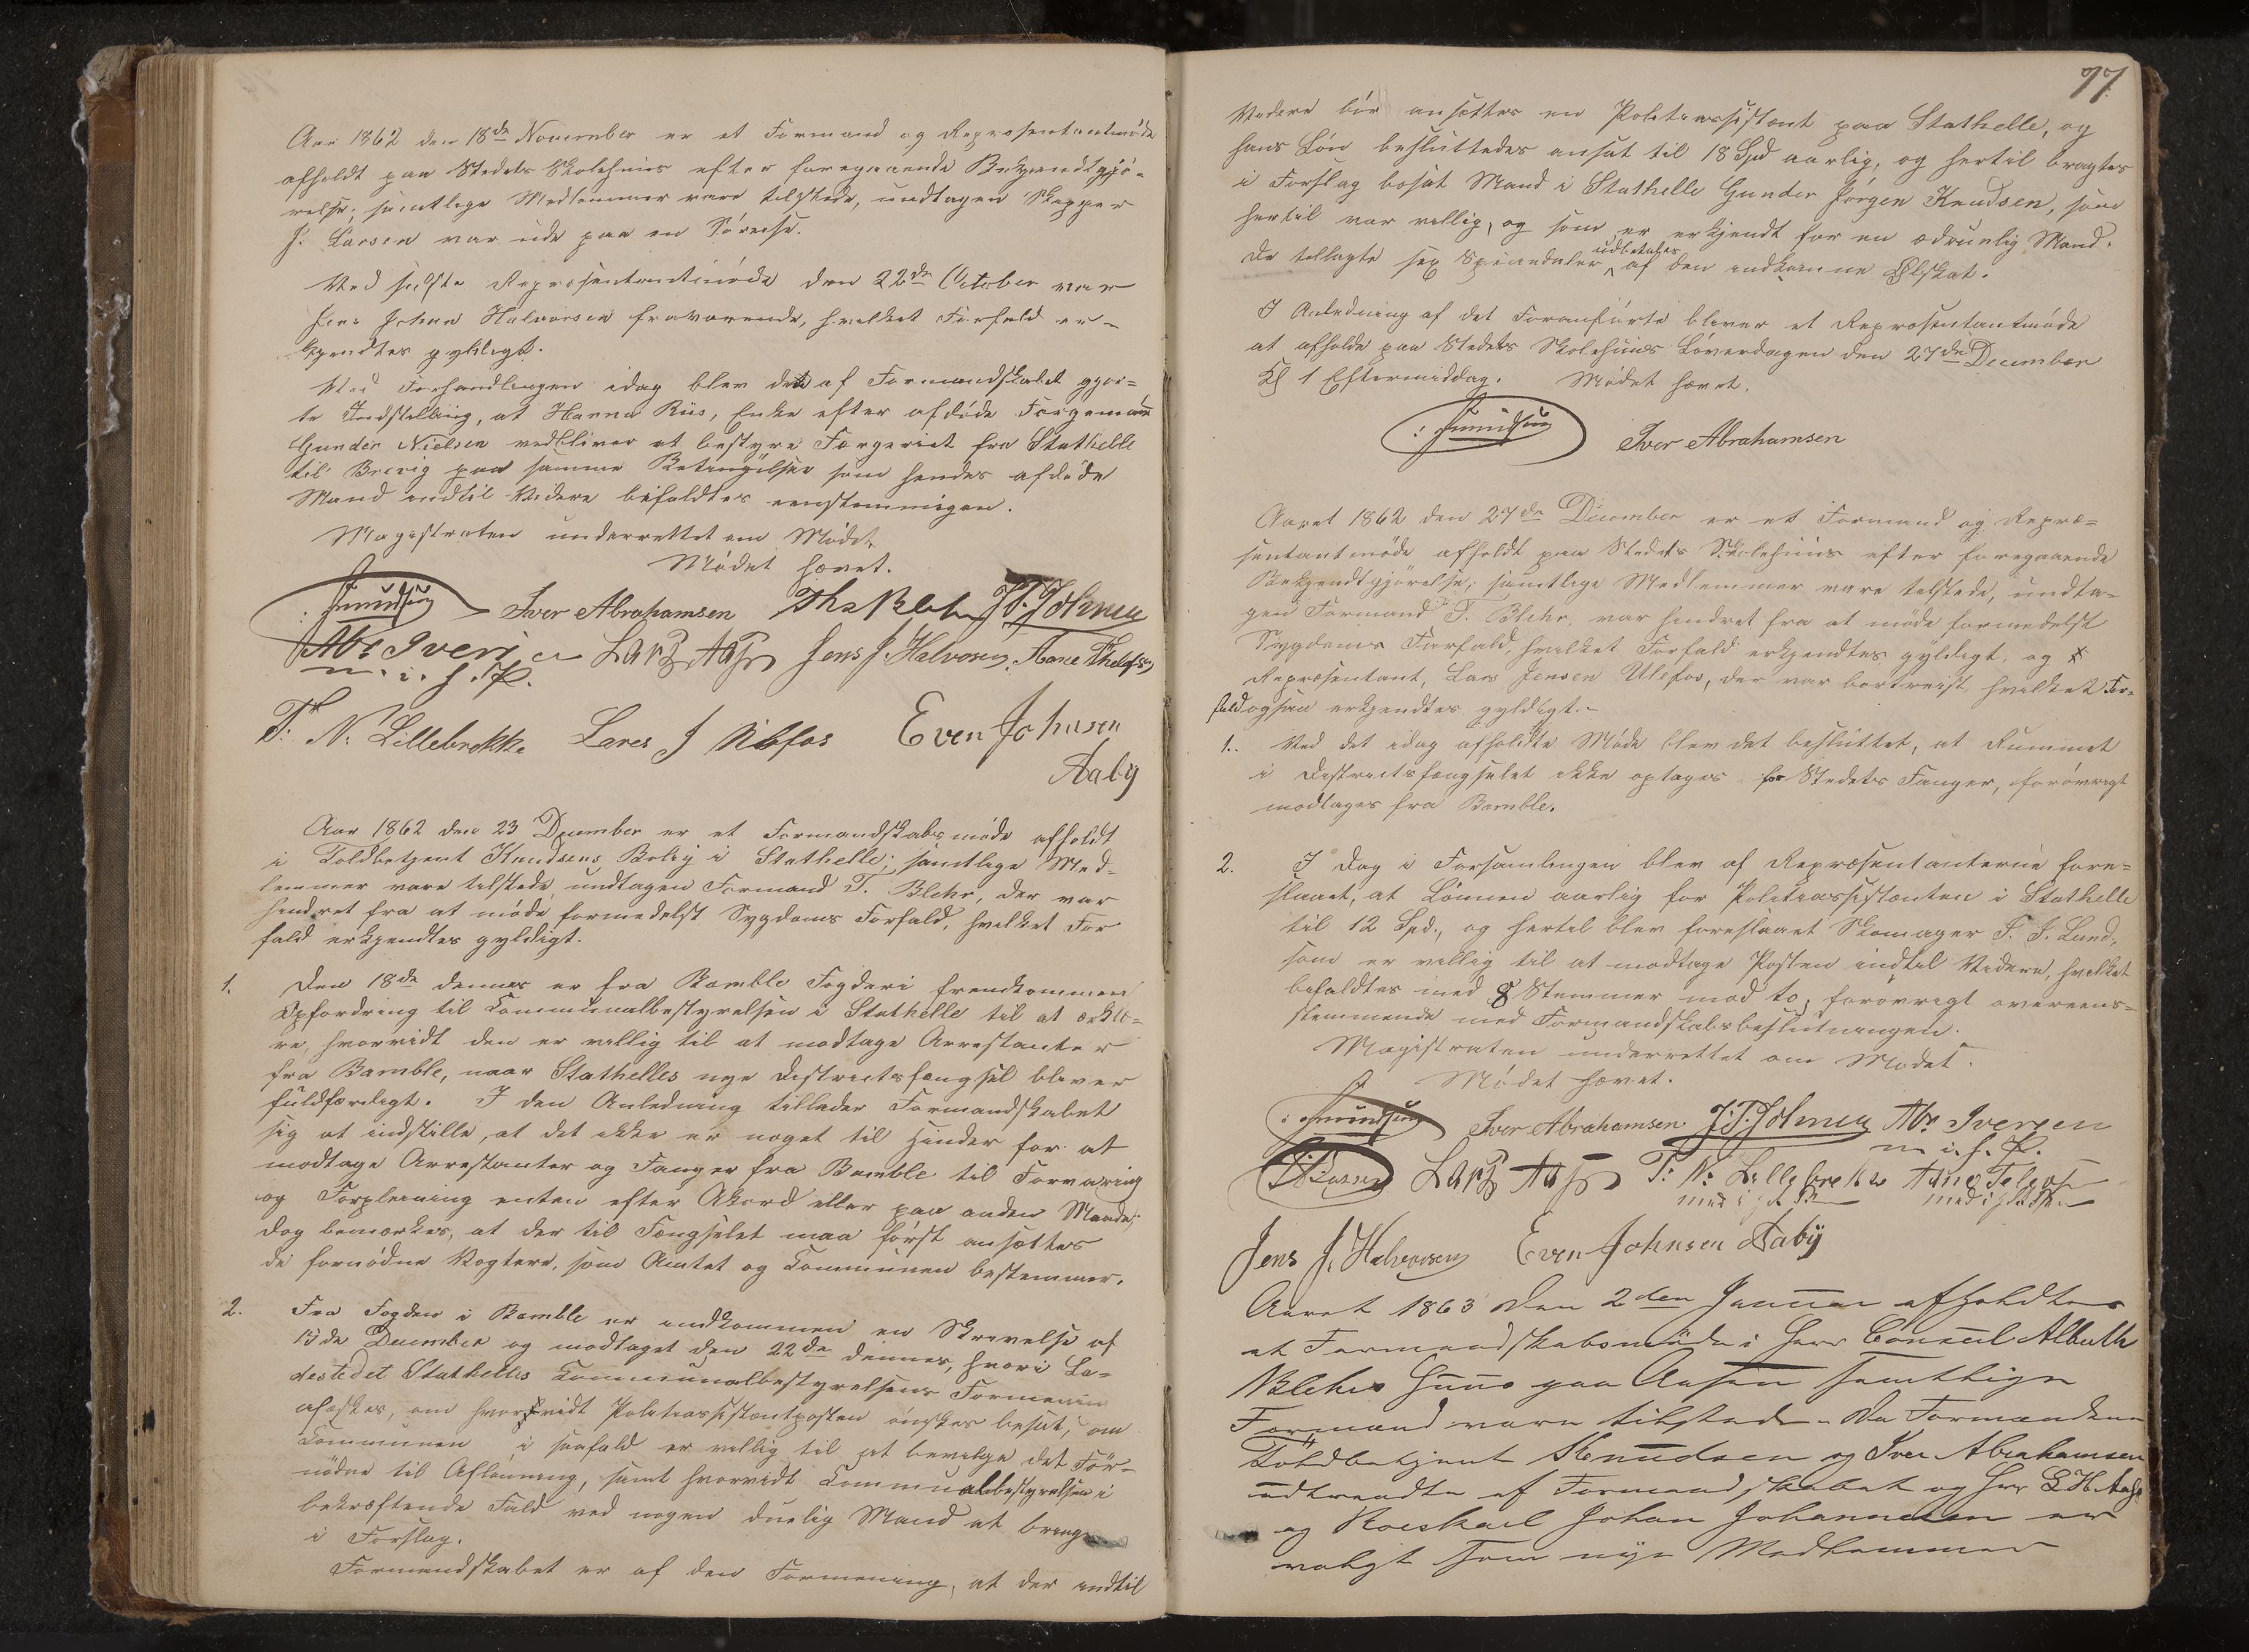 Aar 1862 den 18de November er et Formand og Repræsentantmøde
afholdt paa Stedets Skolehuus efter foregaaende Bekjendtgjö-
relse; samtlige Medlemmer vare tilstede, undtagen Skipper
J. Larsen var ude paa en Söreise.
Ved sidste Repræsentantmöde den 22de October var
Jens Johan Halvorsen fraværende, hvilket Forfald er-
kjendtes gyldigt.
Ved Forhandlingen idag blev det af Formandskabet gjor-
te Indstilling, at Hanna Riis, Enke efter afdöde Færgemann
Gunder Nielsen vedbliver at bestyre Færgeriet fra Stathelle
til Brevig paa samme Betingelser som hendes afdöde
Mand indtil Videre bifaldtes eenstemmigen.
Magistraten underrettet om Mödet.
Mödet hævet.
Iver Abrahamsen Ths Blehr J. T. Johnsen
Abr Iversen Lars Aas Jens J. Halvorsen,
m. i. h. P.
T. N. Lillebrekke Lares J Ulefos Even Johnsen
Aaby
Aar 1862 den 23 December er et Formandskabsmöde afholdt
i Toldbetjent Knudsens Bolig i Stathelle; samtlige Med-
lemmer vare tilstede, undtagen Formand T. Blehr, der var
hindret fra at möde formedelst Sygdoms Forfald, hvilket For
fald erkjendtes gyldigt.
1. Den 18de dennes er fra Bamble Fogderi fremkommen
Opfordring til Communalbestyrelsen i Stathelle til at erklæ-
re, hvorvidt den er villig til at modtage Arrestanter
fra Bamble, naar Stathelles nye Districtsfængsel bliver
fuldfærdigt. I den Anledning tillader Formandskabet
sig at indstille, at det ikke er noget til Hinder for at
modtage Arrestanter og Fanger fra Bamble til Forvaring
og Forpleining enten efter Akord eller paa anden Maade;
dog bemærkes, at der til Fængselet maa først ansættes
de fornödne Vogtere, som Amtet og Communen bestemmer.
2. Fra Fogden i Bamble er indkommen en Skrivelse af
15de December og modtaget den 22de dennes, hvori La-
destedet Stathelles Communalbestyrelsens Formening
afæskes, om hvorvidt Politiassistentposten önskes besat, om
Communen i saafald er villig til at bevilge det For-
nödne til Aflönning, samt hvorvidt Communalbestyrelsen i
bekræftende Fald ved nogen duelig Mand at bringe
i Forslag.
Formandskabet er af den Formening, at der indtil
77
Videre bör ansættes en Politiassistent paa Stathelle, og
hans Lön besluttedes ansat til 18 Spd aarlig, og hertil bragtes
i Forslag bosat Mand i Stathelle Gunder Jörgen Knudsen, som
hertil var villig, og som er erkjendt for en ædruelig Mand.
De tillagte sex Speciedaler udbetales af den indkomne Ölskat.
I Anledning af det Foranförte bliver et Repræsentantmöde
at afholde paa Stedets Skolehuus Löverdagen den 27de December
Kl 1 Eftermiddag. Mödet hævet.
Iver Abrahamsen
Aaret 1862 den 27de December er et Formand og Repræ-
sentantmöde afholdt paa Stedets Skolehuus efter foregaaende
Bekjendtgjörelse; samtlige Medlemmer vare tilstede, undta-
gen Formand T. Blehr, var hindret fra at möde formedelst
Sygdoms Forfald, hvilket Forfald erkjendtes gyldigt, og
Repræsentant, Lars Jensen Ulefos, der var bortreist, hvilket For-
fald ogsaa erkjendtes gyldigt.-
1. Ved det idag afholdte Möde blev det besluttet, at Rummet
i Districtsfængselet ikke optages for Stedets Fanger, forövrigt
modtages fra Bamble.
2. I Dag i Forsamlingen blev af Repræsentanterne fore-
slaaet, at Lönnen aarlig for Politiassistenten i Stathelle
til 12 Spd., og hertil blev foreslaaet Skomager F. J. Lund,
som er villig til at modtage Posten indtil Videre, hvilket
bifaldtes med 8 Stemmer mod to; forövrigt overeens-
stemmende med Formandskabsbeslutningen.
Magistraten underrettet om Mödet.
Mödet hævet.
Iver Abrahamsen J. T. Johnsen Abr Iversen
m. i. h. P.
Lars Aas T. N. Lillebrekke
Jens J. Halvorsen Even Johnsen Aaby
Aaret 1863 den 2den Januar afholdtes
et Formandskabsmöde i Herr Consul Alberth
Blehrs Huus paa Aasen samtlige
Formænd vare tilstede. Da Formændene
Toldbetjent Knudsen og Iver Abrahamsen
udtraadte af Formandskabet og Herr L H Aas
og Johan Johannesen er
valgt som nye Medlemmer